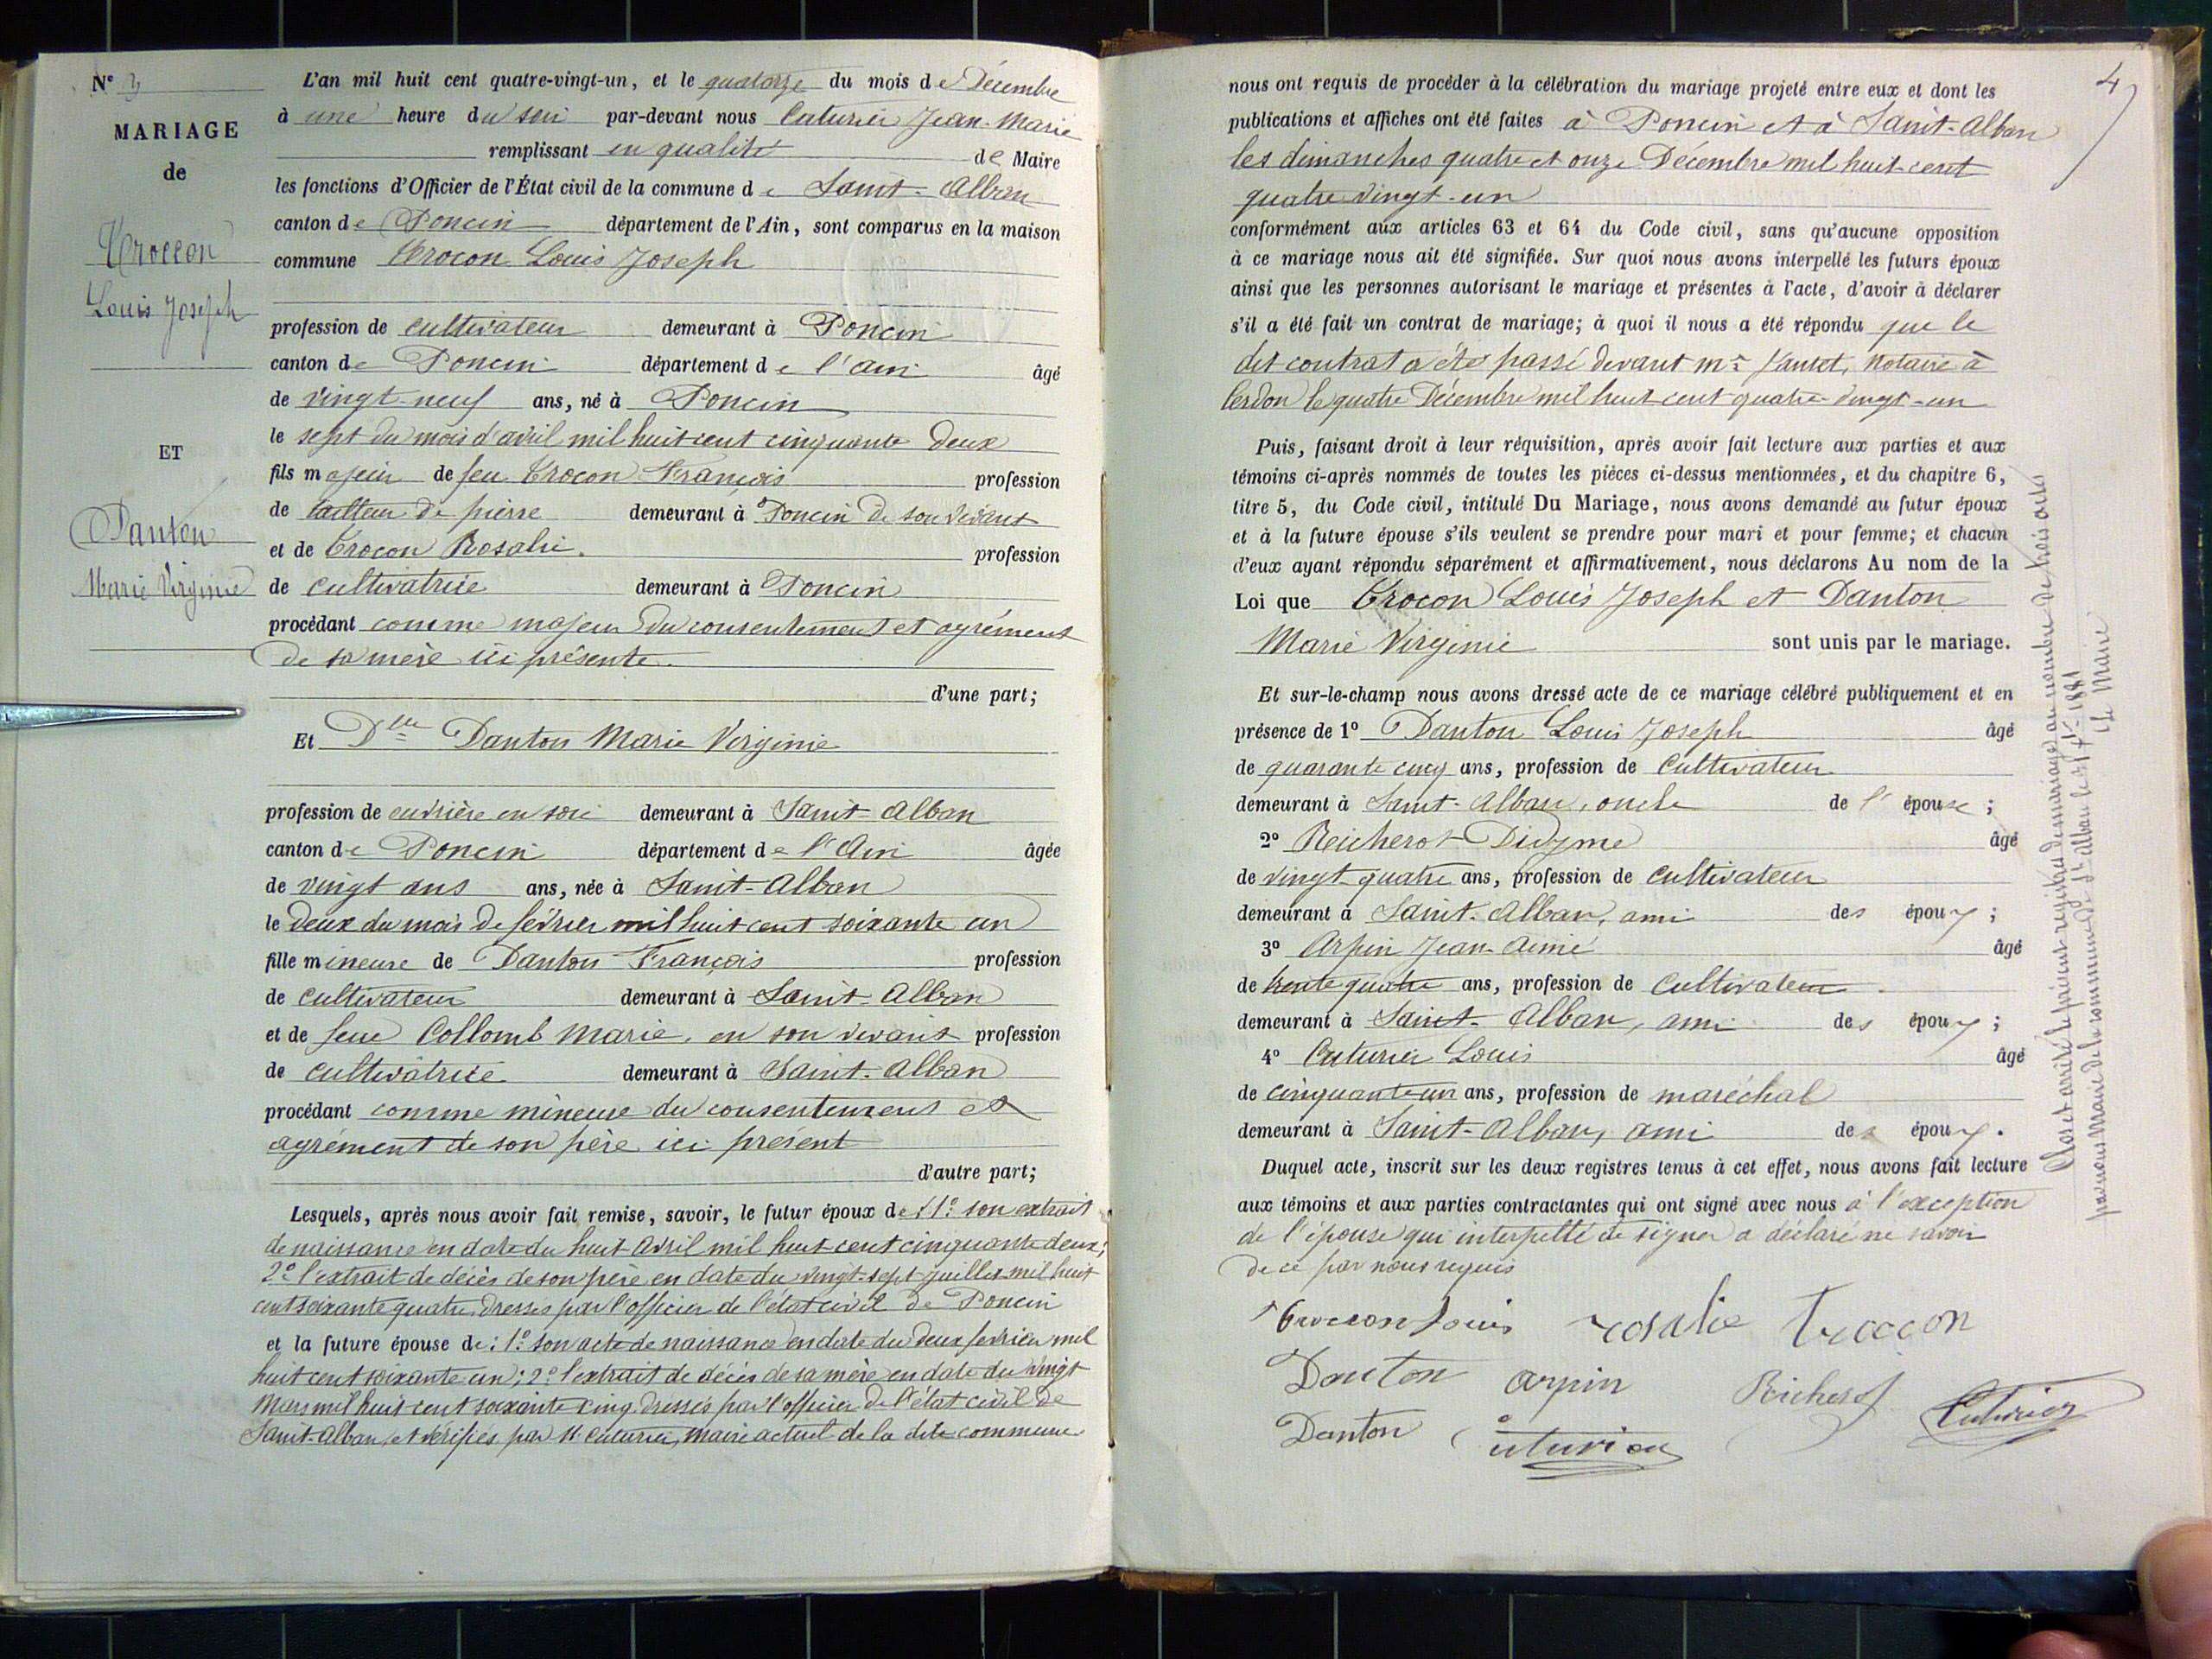 N° 3
MARIAGE
de
Troccon
Louis Joseph
ET
Danton
Marie Virginie
L'an mil huit cent quatre-vingt-un, et le quatorze du mois de Décembre
à une heure du soir par-devant nous Cuturier Jean-Marie
remplissant en qualité de Maire
les fonctions d'Officier de l'État civil de la commune de Saint-Alban
canton de Poncin département de l'Ain, sont comparus en la maison
commune Trocon Louis Joseph
profession de cultivateur demeurant à Poncin
canton de Poncin département de l'ain âgé
de vingt-neuf ans, né à Poncin
le sept du mois d'avril mil huit cent cinquante deux
fils majeur de feu Trocon François profession
de tailleur de pierre demeurant à Poncin de son vivant
et de Trocon Rosalie. profession
de cultivatrice demeurant à Poncin
procédant comme majeur du consentement et agrément
de sa mère ici présente.
d'une part;
Et Dlle Danton Marie Virginie
profession de ouvrière en soie demeurant à Saint-Alban
canton de Poncin département de l'Ain âgée
de vingt ans ans, née à Saint-Alban
le deux du mois de février mil huit cent soixante un
fille mineure de Danton François profession
de cultivateur demeurant à Saint-Alban
et de feue Collomb Marie, en son vivant profession
de cultivatrice demeurant à Saint-Alban
procédant comme mineure du consentement et
agrément de son père ici présent
d'autre part;
Lesquels, après nous avoir fait remise, savoir, le futur époux de : 1° son extrait
de naissance en date du huit Avril mil huit cent cinquante deux;
2° l'extrait de décès de son père en date du vingt-sept juillet mil huit
cent soixante quatre dressés par l'officier de l'état civil de Poncin
et la future épouse de : 1° son acte de naissance en date du deux février mil
huit cent soixante un; 2° l'extrait de décès de sa mère en date du vingt
Mars mil huit cent soixante cinq dressés par l'officier de l'état civil de
Saint-Alban, et vérifiés par M Cuturier, maire actuel de la dite commune
4
nous ont requis de procéder à la célébration du mariage projeté entre eux et dont les
publications et affiches ont été faites à Poncin et à Saint-Alban
les dimanches quatre et onze Décembre mil huit-cent
quatre vingt-un
conformément aux articles 63 et 64 du Code civil, sans qu'aucune opposition
à ce mariage nous ait été signifiée. Sur quoi nous avons interpellé les futurs époux
ainsi que les personnes autorisant le mariage et présentes à l'acte, d'avoir à déclarer
s'il a été fait un contrat de mariage; à quoi il nous a été répondu que le
dit contrat a été passé devant mr notaire à
Cerdon le quatre Décembre mil huit cent quatre-vingt-un
Puis, faisant droit à leur réquisition, après avoir fait lecture aux parties et aux
témoins ci-après nommés de toutes les pièces ci-dessus mentionnées, et du chapitre 6,
titre 5, du Code civil, intitulé Du Mariage, nous avons demandé au futur époux
et à la future épouse s'ils veulent se prendre pour mari et pour femme; et chacun
d'eux ayant répondu séparément et affirmativement, nous déclarons Au nom de la
Loi que Trocon Louis Joseph et Danton
Marie Virginie sont unis par le mariage.
Et sur-le-champ nous avons dressé acte de ce mariage célébré publiquement et en
présence de 1° Danton Louis Joseph âgé
de quarante cinq ans, profession de cultivateur
demeurant à Saint-Alban, oncle de l'épouse;
2° Reicherot Didyme âgé
de vingt-quatre ans, profession de cultivateur
demeurant à Saint-Alban, ami des époux;
3° Arpin Jean-Aimé âgé
de trente quatre ans, profession de Cultivateur.
demeurant à Saint-Alban, ami des époux;
4° Cuturier Louis âgé
de cinquante-un ans, profession de maréchal
demeurant à Saint-Alban, ami des époux.
Duquel acte, inscrit sur les deux registres tenus à cet effet, nous avons fait lecture
aux témoins et aux parties contractantes qui ont signé avec nous à l'exception
de l'épouse qui interpellé de signer a déclaré ne savoir
de ce par nous requis
Troccon Louis rosalie Troccon
Danton arpin Richerot Cuturier
Danton Cuturier
Clos et arrêté le présent registre de mariage au nombre de trois actes
par nous Maire de la commune de St Alban le 31 Xbre 1881
Le Maire